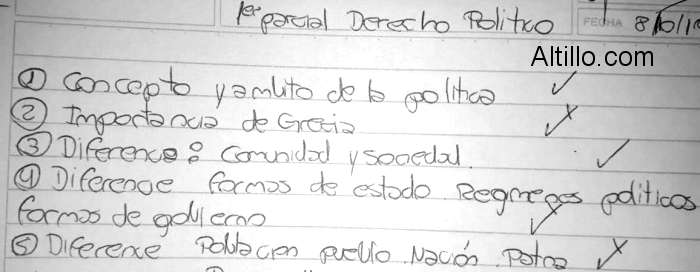 1er parcial Derecho Politico FECHA 8/10/1
Altillo.com
① Concepto y ambito de la politica
② Importancia de Grecia
③ Diferencie: Comunidad y sociedad.
④ Diferencie formas de estado Regimenes politicos
formas de gobierno
⑤ Diferencie Poblacion pueblo Nación Patria